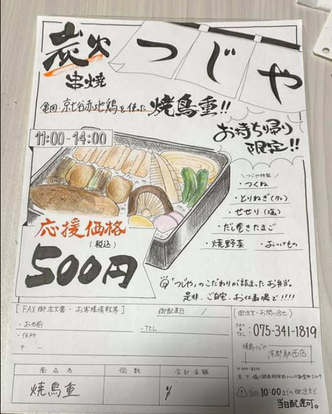 炭火
串焼
つじや
亀岡・京七谷赤地鶏を使った
焼鳥重!!
お持ち帰り
限定!!
11:00-14:00
\つじや特製/
・つくね
・とりねぎ(タレ)
・せせり(塩)
・だし巻きたまご
・焼野菜
応援価格
(税込)
500円
"つじや"のこだわりが詰まったお弁当。
是非、ご自宅・お仕事場で!!!!
・お名前
・住所
〒 -
・TEL
TEL 075-341-1819
FAX
京都駅西店
商品名
個数
合計金額
焼鳥重
¥
10:00までの御注文で
当日配達可。